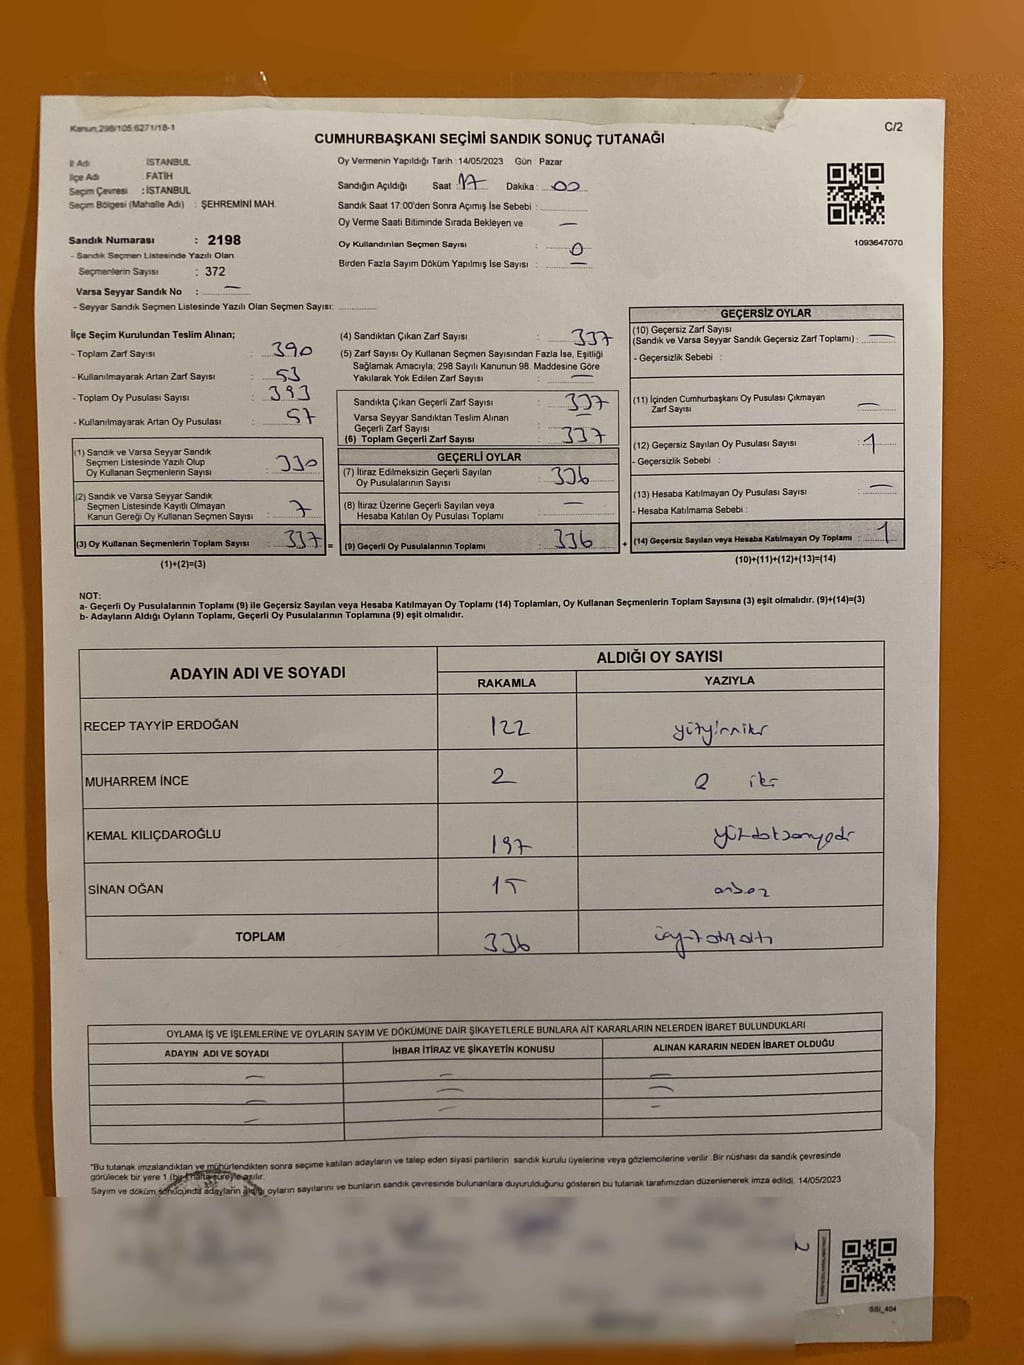 Kanun;298/105;6271/18-1
C/2
CUMHURBAŞKANI SEÇİMİ SANDIK SONUÇ TUTANAĞI
İl Adı : İSTANBUL
İlçe Adı : FATİH
Seçim Çevresi : İSTANBUL
Seçim Bölgesi (Mahalle Adı) : ŞEHREMİNİ MAH.
Sandık Numarası : 2198
- Sandık Seçmen Listesinde Yazılı Olan
Seçmenlerin Sayısı : 372
Varsa Seyyar Sandık No : —
- Seyyar Sandık Seçmen Listesinde Yazılı Olan Seçmen Sayısı:
Oy Vermenin Yapıldığı Tarih : 14/05/2023 Gün : Pazar
Sandığın Açıldığı Saat : 17 Dakika : 00
Sandık Saat 17:00'den Sonra Açımış İse Sebebi :
Oy Verme Saati Bitiminde Sırada Bekleyen ve —
Oy Kullandırılan Seçmen Sayısı : 0
Birden Fazla Sayım Döküm Yapılmış İse Sayısı : —
1093647070
İlçe Seçim Kurulundan Teslim Alınan;
- Toplam Zarf Sayısı : 390
- Kullanılmayarak Artan Zarf Sayısı : 53
- Toplam Oy Pusulası Sayısı : 393
- Kullanılmayarak Artan Oy Pusulası : 57
(1) Sandık ve Varsa Seyyar Sandık
Seçmen Listesinde Yazılı Olup
Oy Kullanan Seçmenlerin Sayısı : 330
(2) Sandık ve Varsa Seyyar Sandık
Seçmen Listesinde Kayıtlı Olmayan
Kanun Gereği Oy Kullanan Seçmen Sayısı : 7
(3) Oy Kullanan Seçmenlerin Toplam Sayısı : 337 =
(1)+(2)=(3)
(4) Sandıktan Çıkan Zarf Sayısı : 337
(5) Zarf Sayısı Oy Kullanan Seçmen Sayısından Fazla İse, Eşitliği
Sağlamak Amacıyla; 298 Sayılı Kanunun 98. Maddesine Göre
Yakılarak Yok Edilen Zarf Sayısı : —
Sandıkta Çıkan Geçerli Zarf Sayısı : 337
Varsa Seyyar Sandıktan Teslim Alınan
Geçerli Zarf Sayısı : —
(6) Toplam Geçerli Zarf Sayısı : 337
GEÇERLİ OYLAR
(7) İtiraz Edilmeksizin Geçerli Sayılan
Oy Pusulalarının Sayısı : 336
(8) İtiraz Üzerine Geçerli Sayılan veya
Hesaba Katılan Oy Pusulası Toplamı : —
(9) Geçerli Oy Pusulalarının Toplamı : 336 +
GEÇERSİZ OYLAR
(10) Geçersiz Zarf Sayısı
(Sandık ve Varsa Seyyar Sandık Geçersiz Zarf Toplamı) : —
- Geçersizlik Sebebi :
(11) İçinden Cumhurbaşkanı Oy Pusulası Çıkmayan
Zarf Sayısı : —
(12) Geçersiz Sayılan Oy Pusulası Sayısı : 1
- Geçersizlik Sebebi :
(13) Hesaba Katılmayan Oy Pusulası Sayısı : —
- Hesaba Katılmama Sebebi :
(14) Geçersiz Sayılan veya Hesaba Katılmayan Oy Toplamı : 1
(10)+(11)+(12)+(13)=(14)
NOT:
a- Geçerli Oy Pusulalarının Toplamı (9) ile Geçersiz Sayılan veya Hesaba Katılmayan Oy Toplamı (14) Toplamları, Oy Kullanan Seçmenlerin Toplam Sayısına (3) eşit olmalıdır. (9)+(14)=(3)
b- Adayların Aldığı Oyların Toplamı, Geçerli Oy Pusulalarının Toplamına (9) eşit olmalıdır.
ADAYIN ADI VE SOYADI
ALDIĞI OY SAYISI
RAKAMLA YAZIYLA
RECEP TAYYİP ERDOĞAN 122 yüzyirmiiki
MUHARREM İNCE 2 iki
KEMAL KILIÇDAROĞLU 197 yüzdoksanyedi
SİNAN OĞAN 15 onbeş
TOPLAM 336 üçyüzotuzaltı
OYLAMA İŞ VE İŞLEMLERİNE VE OYLARIN SAYIM VE DÖKÜMÜNE DAİR ŞİKAYETLERLE BUNLARA AİT KARARLARIN NELERDEN İBARET BULUNDUKLARI
ADAYIN ADI VE SOYADI İHBAR İTİRAZ VE ŞİKAYETİN KONUSU ALINAN KARARIN NEDEN İBARET OLDUĞU
*Bu tutanak imzalandıktan ve mühürlendikten sonra seçime katılan adayların ve talep eden siyasi partilerin sandık kurulu üyelerine veya gözlemcilerine verilir. Bir nüshası da sandık çevresinde
görülecek bir yere 1 (bir) hafta süreyle asılır.
Sayım ve döküm sonucunda adayların aldığı oyların sayılarını ve bunların sandık çevresinde bulunanlara duyurulduğunu gösteren bu tutanak tarafımızdan düzenlenerek imza edildi. 14/05/2023